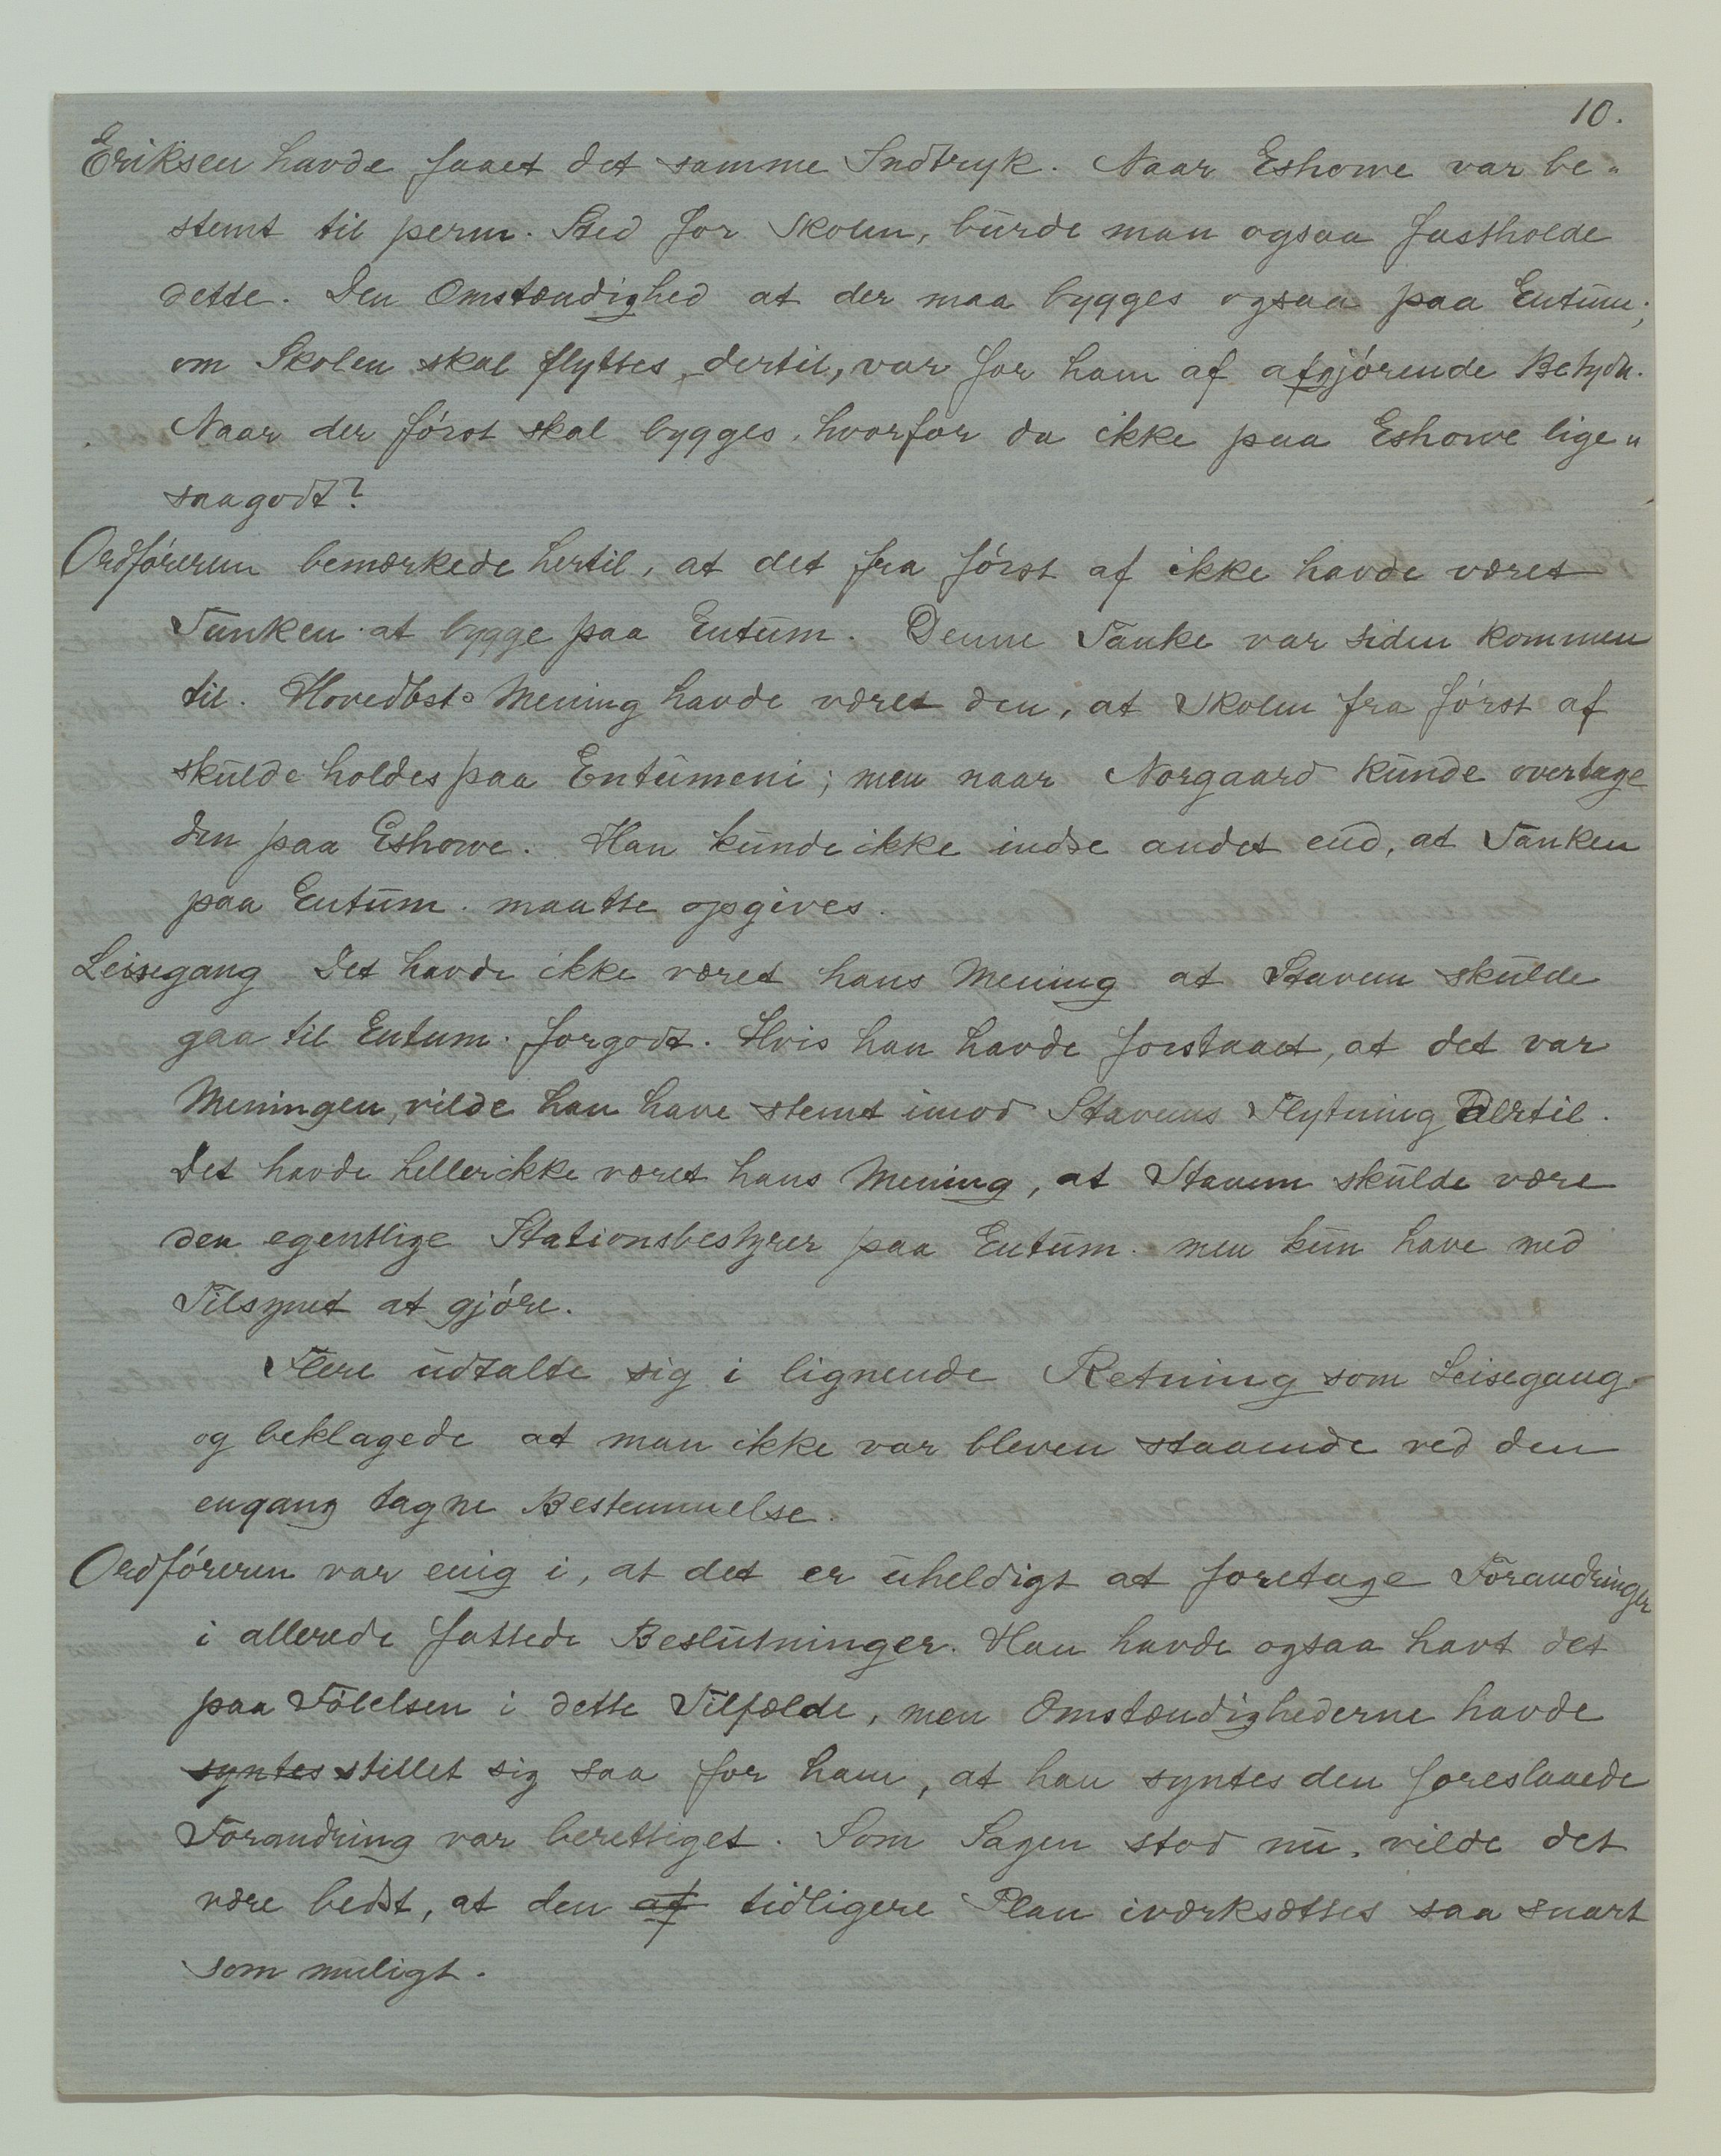 10.
Eriksen havde faaet det samme Indtryk. Naar Eshowe var be-
stemt til perm. Sted for Skolen, burde man ogsaa fastholde
dette. Den Omstændighed at der maa bygges ogsaa paa Entum;
om Skolen skal flyttes dertil, var for ham af afgjørende Betydn.
Naar der først skal bygges, hvorfor da ikke paa Eshowe lige-
saagodt?
Ordføreren bemærkede hertil, at det fra først af ikke havde været
Tanken at bygge paa Entum. Denne Tanke var siden kommen
til. Hovedbsts Mening havde været den, at Skolen fra først af
skulde holdes paa Entumeni; men naar Norgaard kunde overtage
den paa Eshowe. Han kunde ikke indse andet end, at Tanken
paa Entum. maatte opgives.
Leisegang Det havde ikke været hans Mening at Stavem skulde
gaa til Entum. forgodt. Hvis han havde forstaaet, at det var
Meningen, vilde han have stemt imod Stavems Flytning dertil.
Det havde hellerikke været hans Mening, at Stavem skulde være
den egentlige Stationsbestyrer paa Entum. men kun have med
Tilsynet at gjøre.
Flere udtalte sig i lignende Retning som Leisegang
og beklagede at man ikke var bleven staaende ved den
engang tagne Bestemmelse.
Ordføreren var enig i, at det er uheldigt at foretage Forandringer
i allerede fattede Beslutninger. Han havde ogsaa havt det
paa Følelsen i dette Tilfælde, men Omstændighederne havde
syntes stillet sig saa for ham, at han syntes den foreslaaede
Forandring var berettiget. Som Sagen stod nu, vilde det
være bedst, at den af tidligere Plan iværksættes saa snart
som muligt.